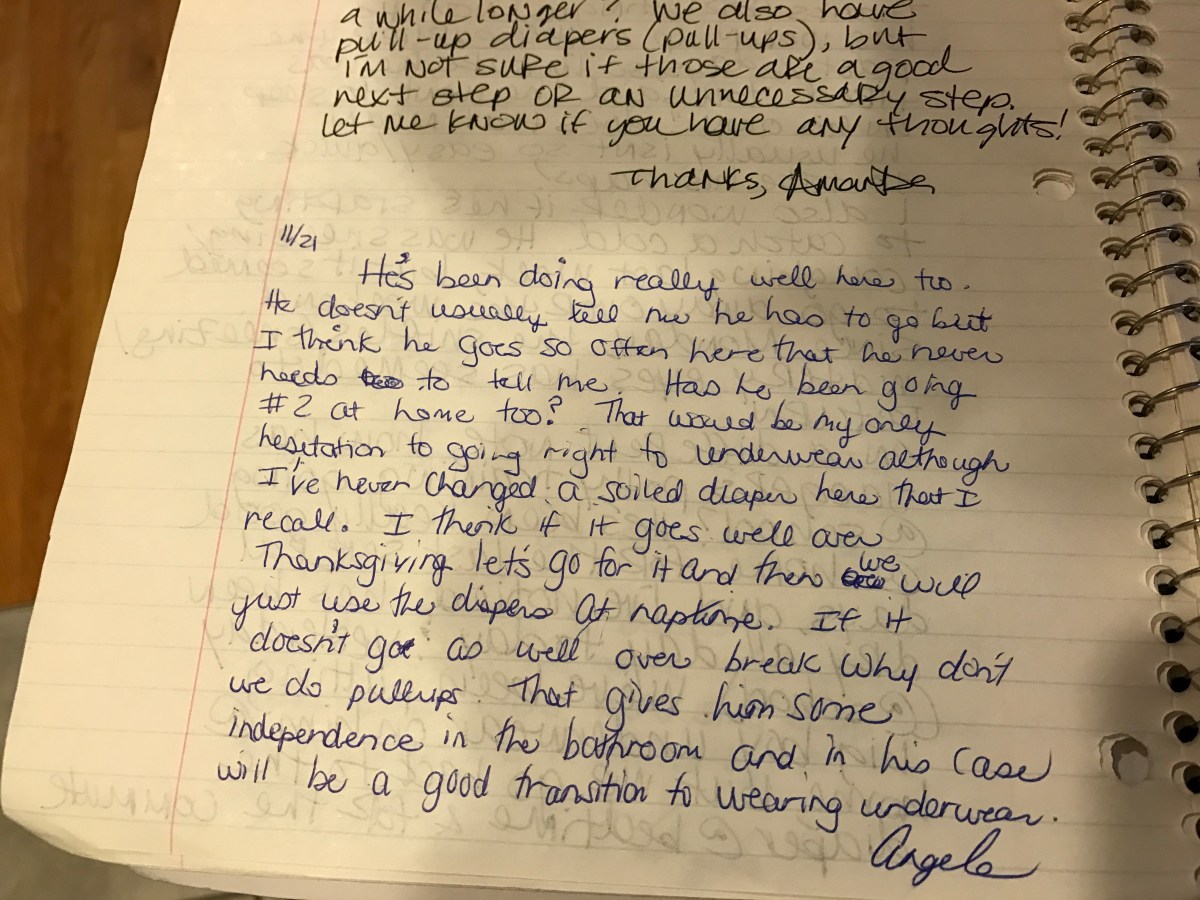 a while longer? We also have
pull-up diapers (pull-ups), but
I'm not sure if those are a good
next step or an unnecessary step.
Let me know if you have any thoughts!
Thanks, Amanda
11/21
He's been doing really well here too.
He doesn't usually tell me he has to go but
I think he goes so often here that he never
needs to tell me. Has he been going
#2 at home too? That would be my only
hesitation to going right to underwear although
I've never changed a soiled diaper here that I
recall. I think if it goes well over
Thanksgiving let's go for it and then we will
just use the diapers at naptime. If it
doesn't go as well over break why don't
we do pullups. That gives him some
independence in the bathroom and in his case
will be a good transition to wearing underwear.
Angela